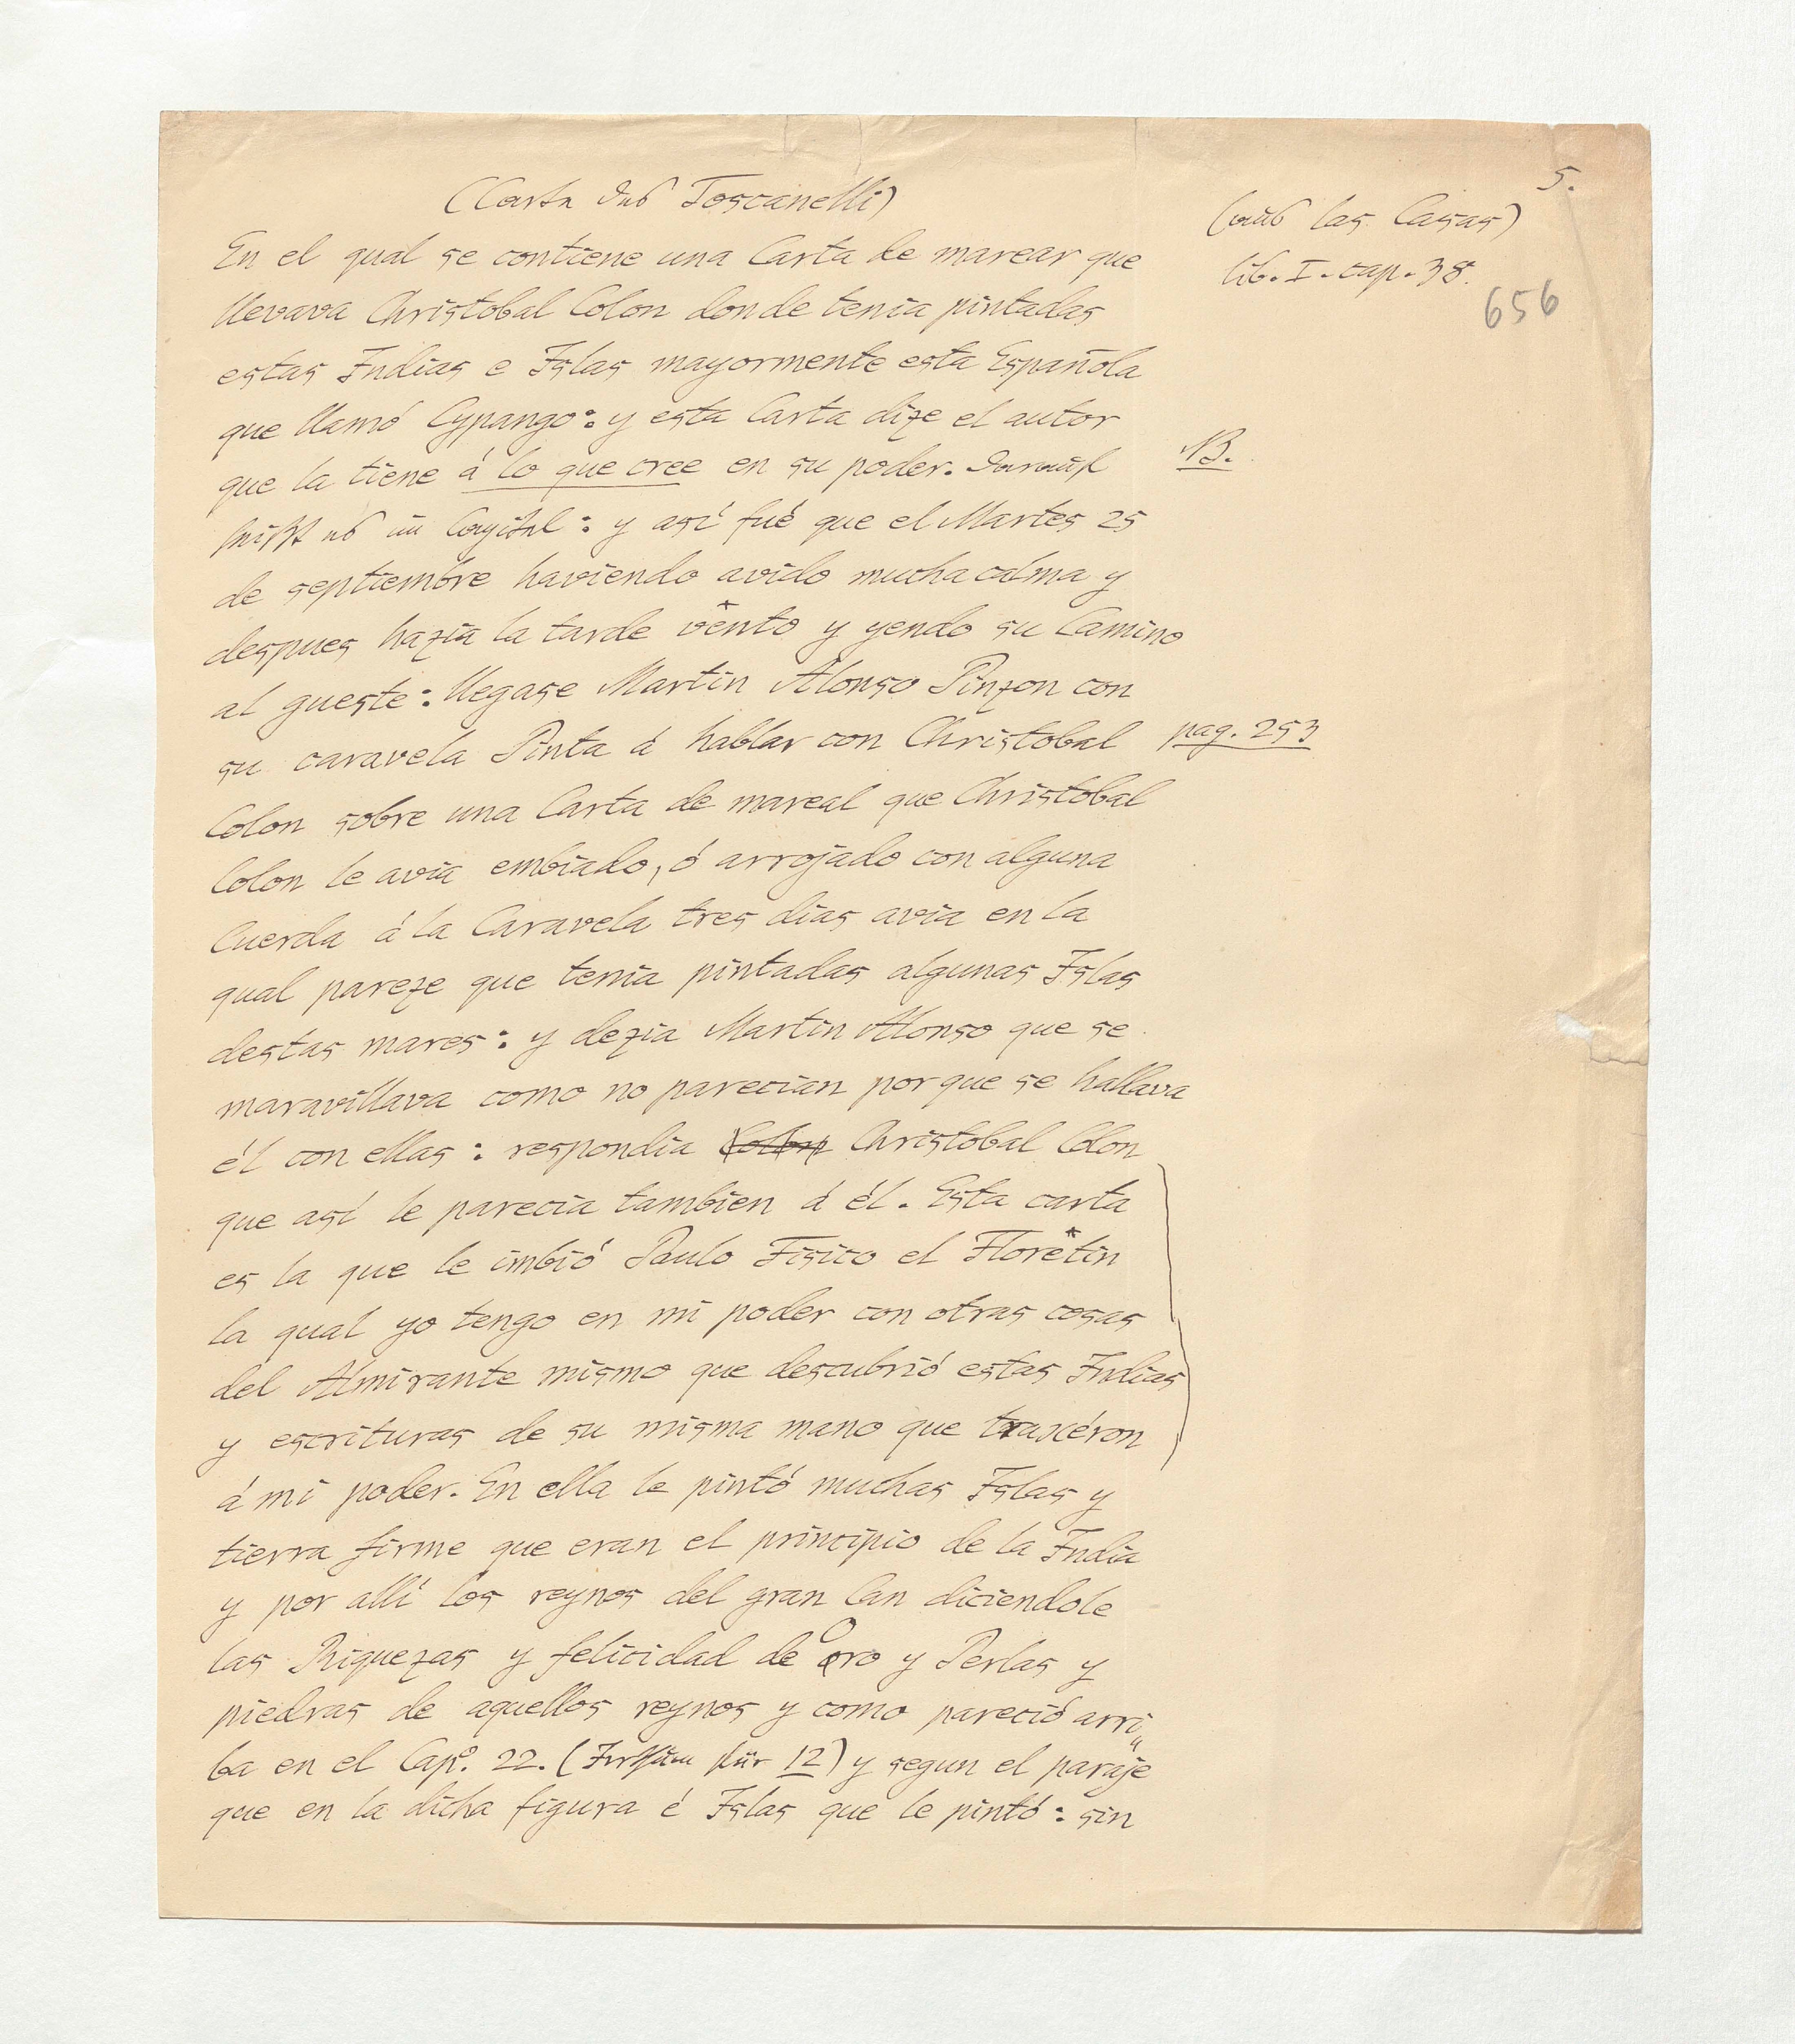 5.
(Carta des Toscanelli)
(aus las Casas)
lib. I. cap. 38.
656
En el qual se contiene una Carta de marear que
llevava Christobal Colon donde tenia pintadas
estas Indias e Islas mayormente esta Española
que llamó Cypango: y esta Carta dize el autor
que la tiene á lo que cree en su poder. Darauf
NB.
heißt es im Capitel: y así fué que el Martes 25
de septiembre haviendo avido mucha calma y
despues hazia la tarde vēnto y yendo su Camino
al gueste: llegase Martin Alonso Pinzon con
su caravela Pinta á hablar con Christobal
pag. 253
Colon sobre una Carta de mareal que Christobal
Colon le avia embiado, ó arrojado con alguna
Cuerda á la Caravela tres dias avia en la
qual pareze que tenia pintadas algunas Islas
destas mares: y dezia Martin Alonso que se
maravillava como no parecian porque se hallava
él con ellas: respondia Colon Christobal Colon
que así le parecia tambien á él. Esta carta
es la que le imbió Paulo Fisico el Florētin
la qual yo tengo en mi poder con otras cosas
del Almirante mismo que descubrió estas Indias
y escrituras de su misma mano que traxéron
á mi poder. En ella le pintó muchas Islas y
tierra firme que eran el principio de la India
y por allí los reynos del gran Can diciendole
las Riquezas y felicidad de Oro y Perlas y
piedras de aquellos reynos y como pareció arri„
ba en el Capº. 22. (Irrthum für 12) y segun el paraje
que en la dicha figura é Islas que le pintó: sin